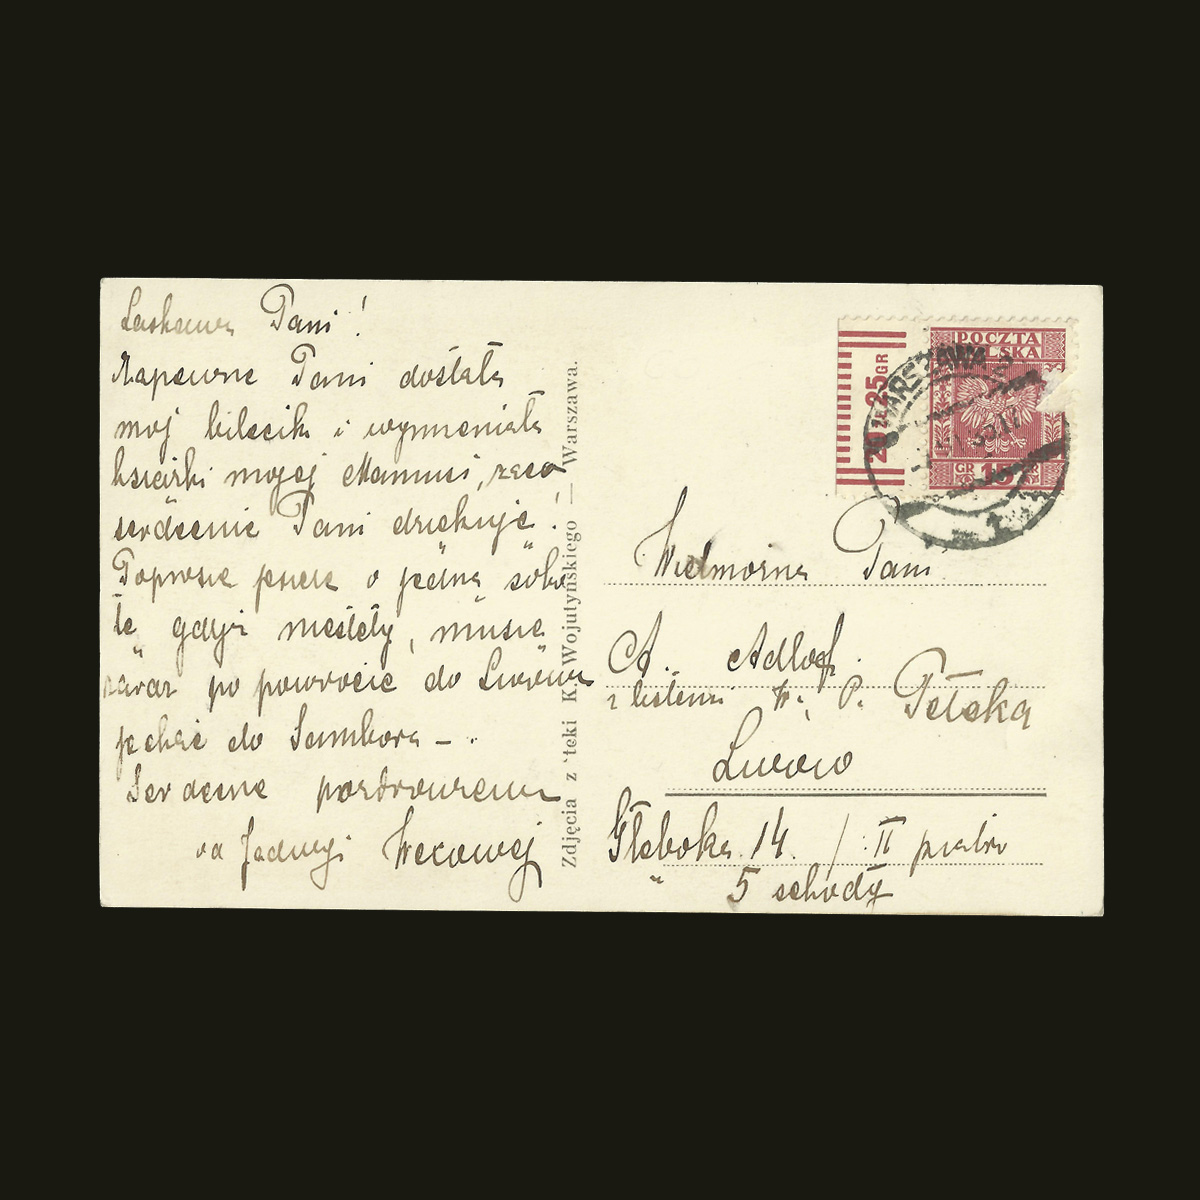 Łaskawa Pani!
Napewne Pani dostała
mój bilecik i wymieniała
książki mojej Mamusi, za co
serdecznie Pani dziękuję!
Poproszę jeszcze o jedną sobo
tę gdyż niestety, muszę
zaraz po powrocie do Lwowa
jechać do Sambora –.
Serdeczne pozdrowienia
od Jadwigi
Zdjęcia z teki K. Wojutyńskiego — Warszawa.
20 ZŁ 25 GR
POCZTA
POLSKA
GR 15 GR
WARSZAWA
1
Wielmożna Pani
A. Adlof
z listem W. P.
Lwów
Głęboka 14. / II piętro
5 schody